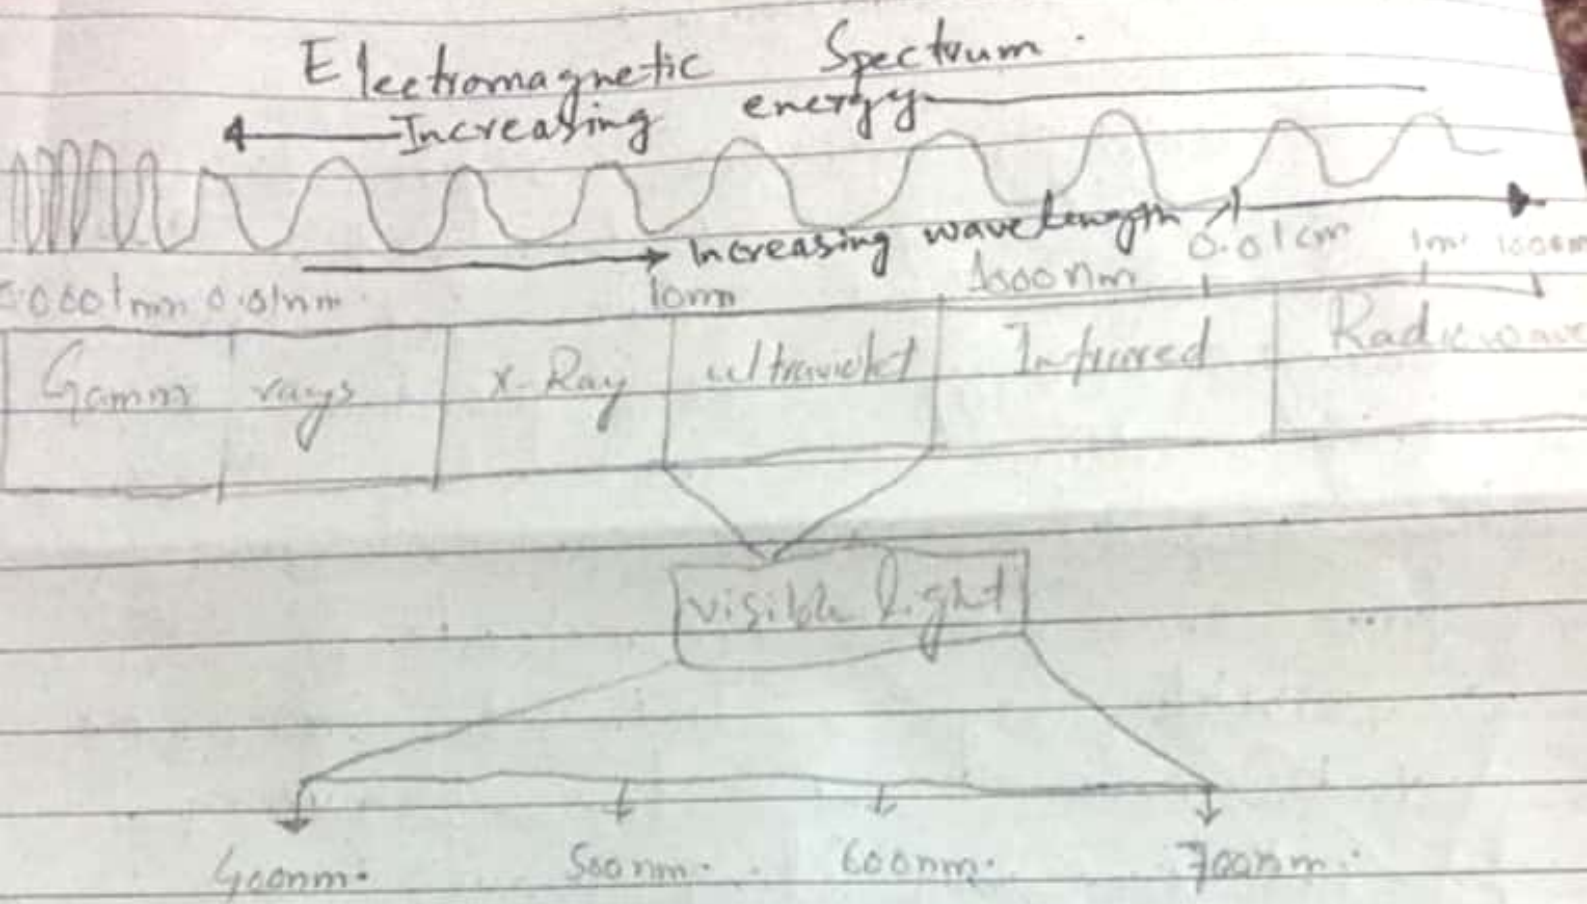 Electromagnetic Spectrum.
Increasing energy
Increasing wavelength
0.0001nm 0.01nm 10nm 1000nm 0.01cm 1m 100m
Gamm rays x-Ray ultraviolet Infrared Radiowave
visible light
400nm. 500nm. 600nm. 700nm.